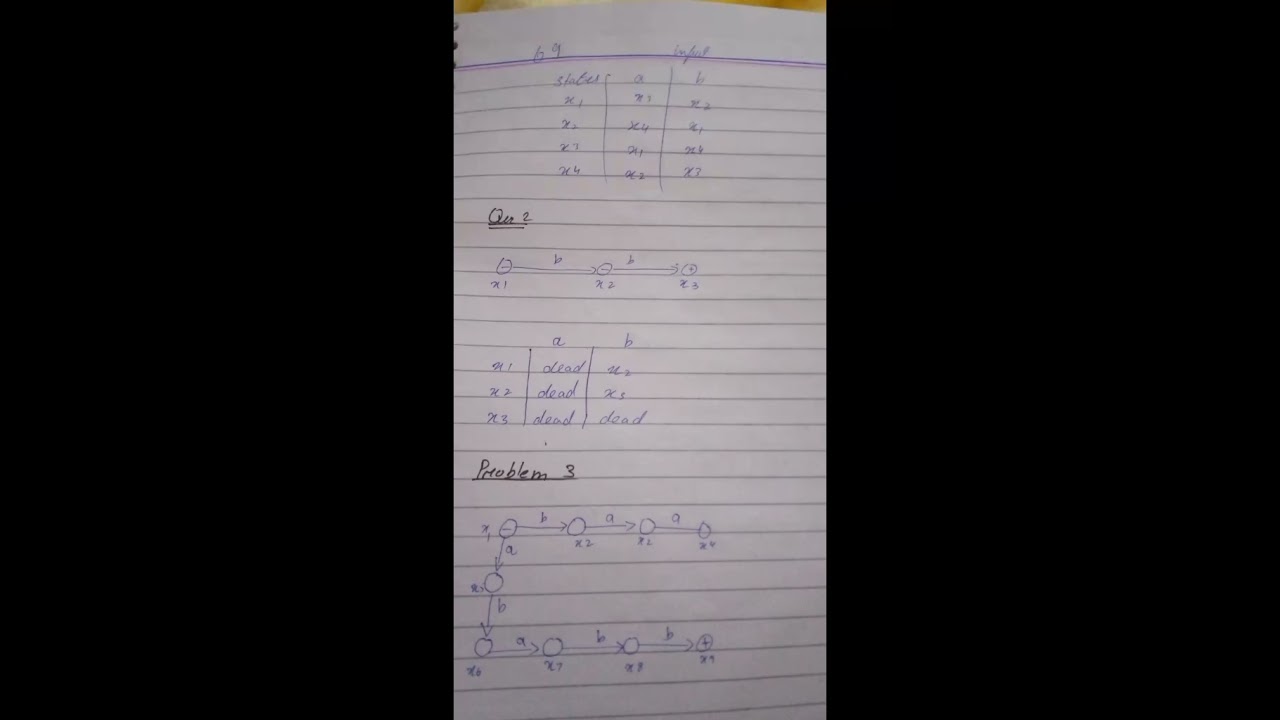 69 input
states a b
x1 x3 x2
x2 x4 x1
x3 x1 x4
x4 x2 x3
Que 2
b b
x1 x2 x3
a b
x1 dead x2
x2 dead x3
x3 dead dead
Problem 3
b a a
x1 - x2 x2 x4
a
b
a b b +
x6 x7 x8 x9